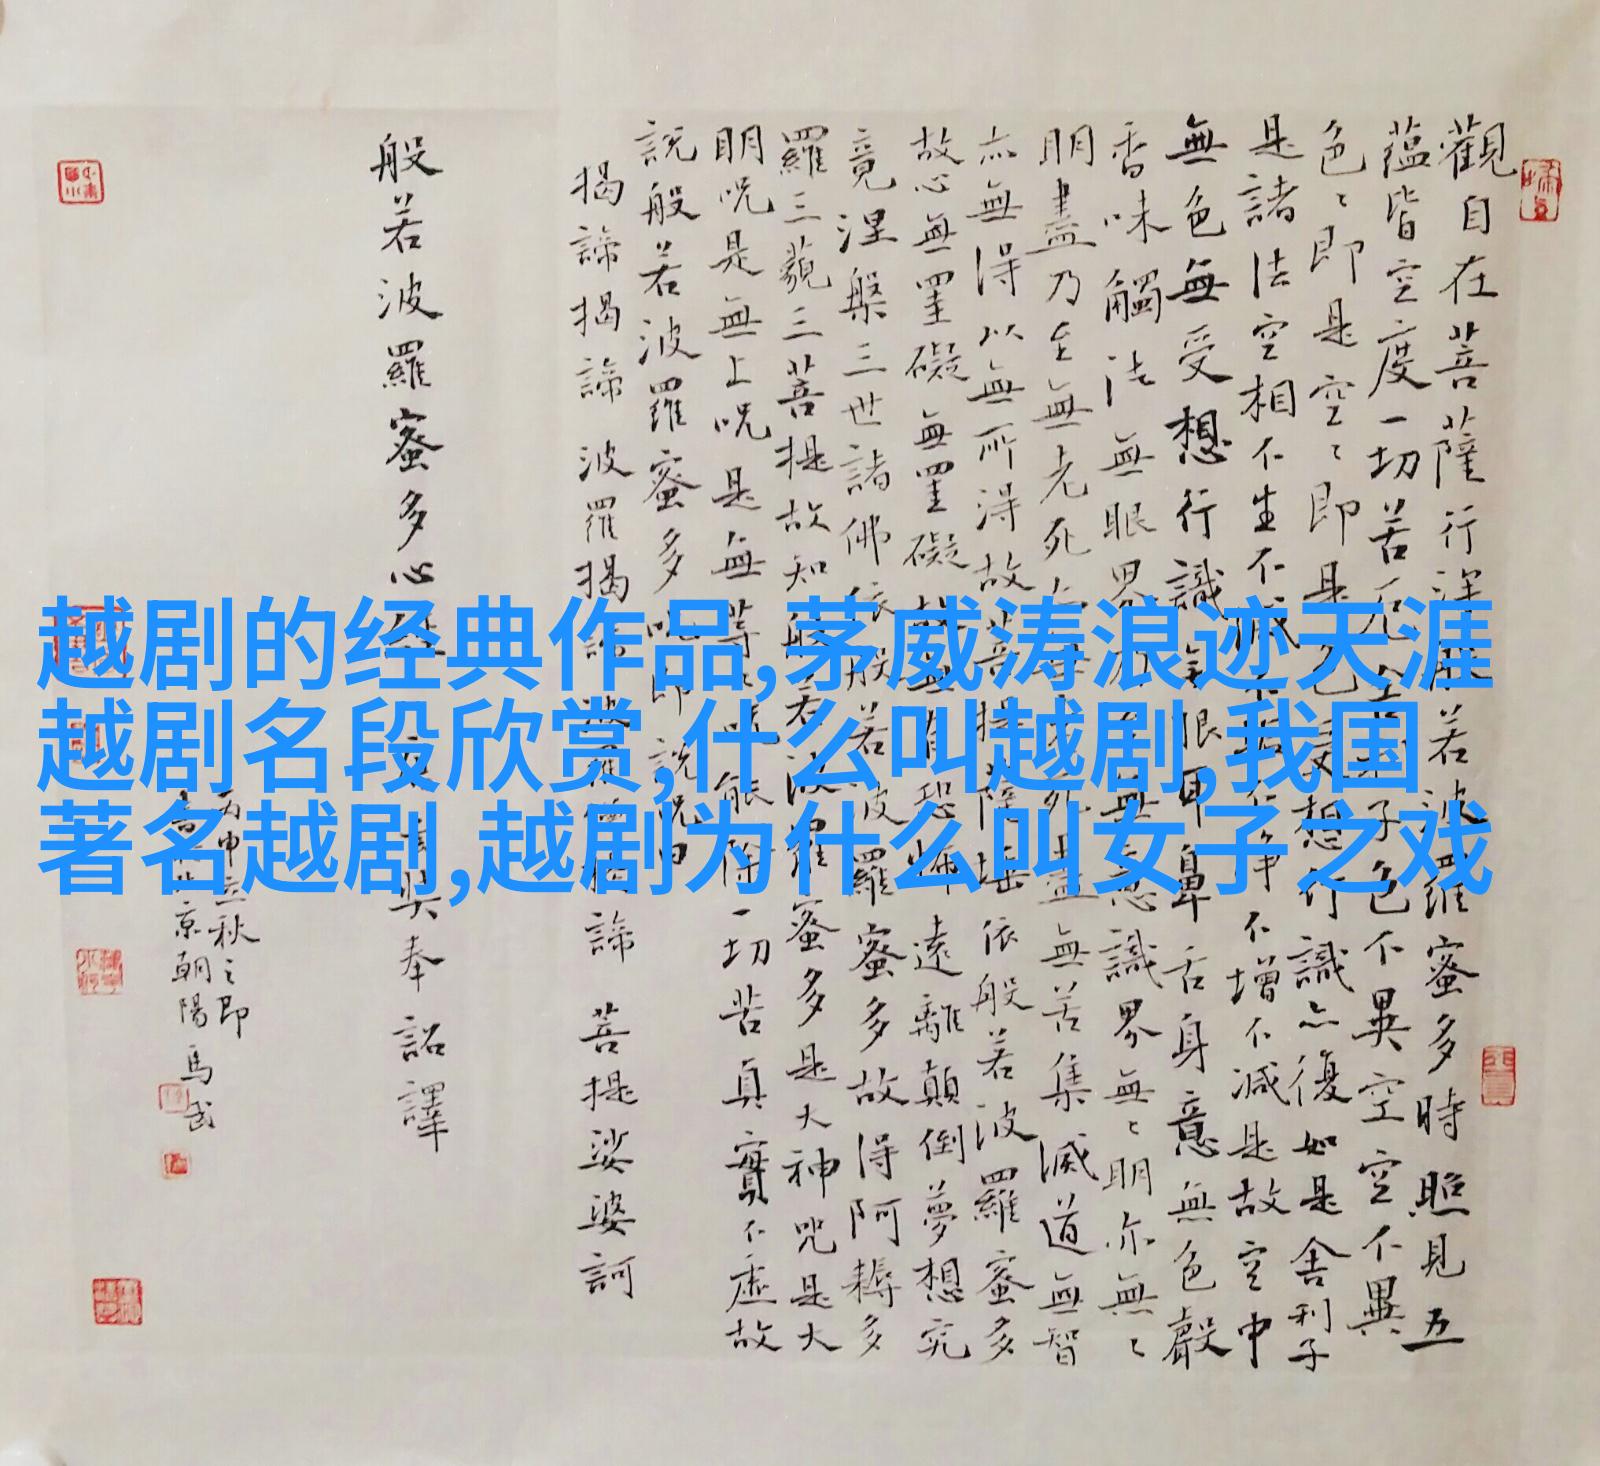 越剧的经典作品,茅威涛浪迹天涯
越剧名段欣赏,什么叫越剧,我国
著名越剧,越剧为什么叫女子之戏
觀自在菩薩行深般若波羅蜜多時照見五
蘊皆空度一切苦厄舍利子色不異空空不異
色〻即是空〻即是色受想行識亦復如是舍利子
是諸法空相不生不滅不垢不淨不增不減是故空中
無色無受想行識無眼耳鼻舌身意無色聲
香味觸法無眼界乃至無意識界無〻明亦無〻
明盡乃至無老死亦無老死盡無苦集滅道無智
亦無得以無所得故菩提薩埵依般若波羅蜜多
故心無罣礙無罣礙故無有恐怖遠離顛倒夢想究
竟涅槃三世諸佛依般若波羅蜜多故得阿耨多
羅三藐三菩提故知般若波羅蜜多是大神咒是大
明咒是無上咒是無等〻咒能除一切苦真實不虛故
說般若波羅蜜多咒即說咒曰
揭諦揭諦 波羅揭諦 波羅僧揭諦 菩提娑婆訶
般若波羅蜜多心經 玄奘奉詔譯
丙申立秋之即
書於北京朝陽 馬武